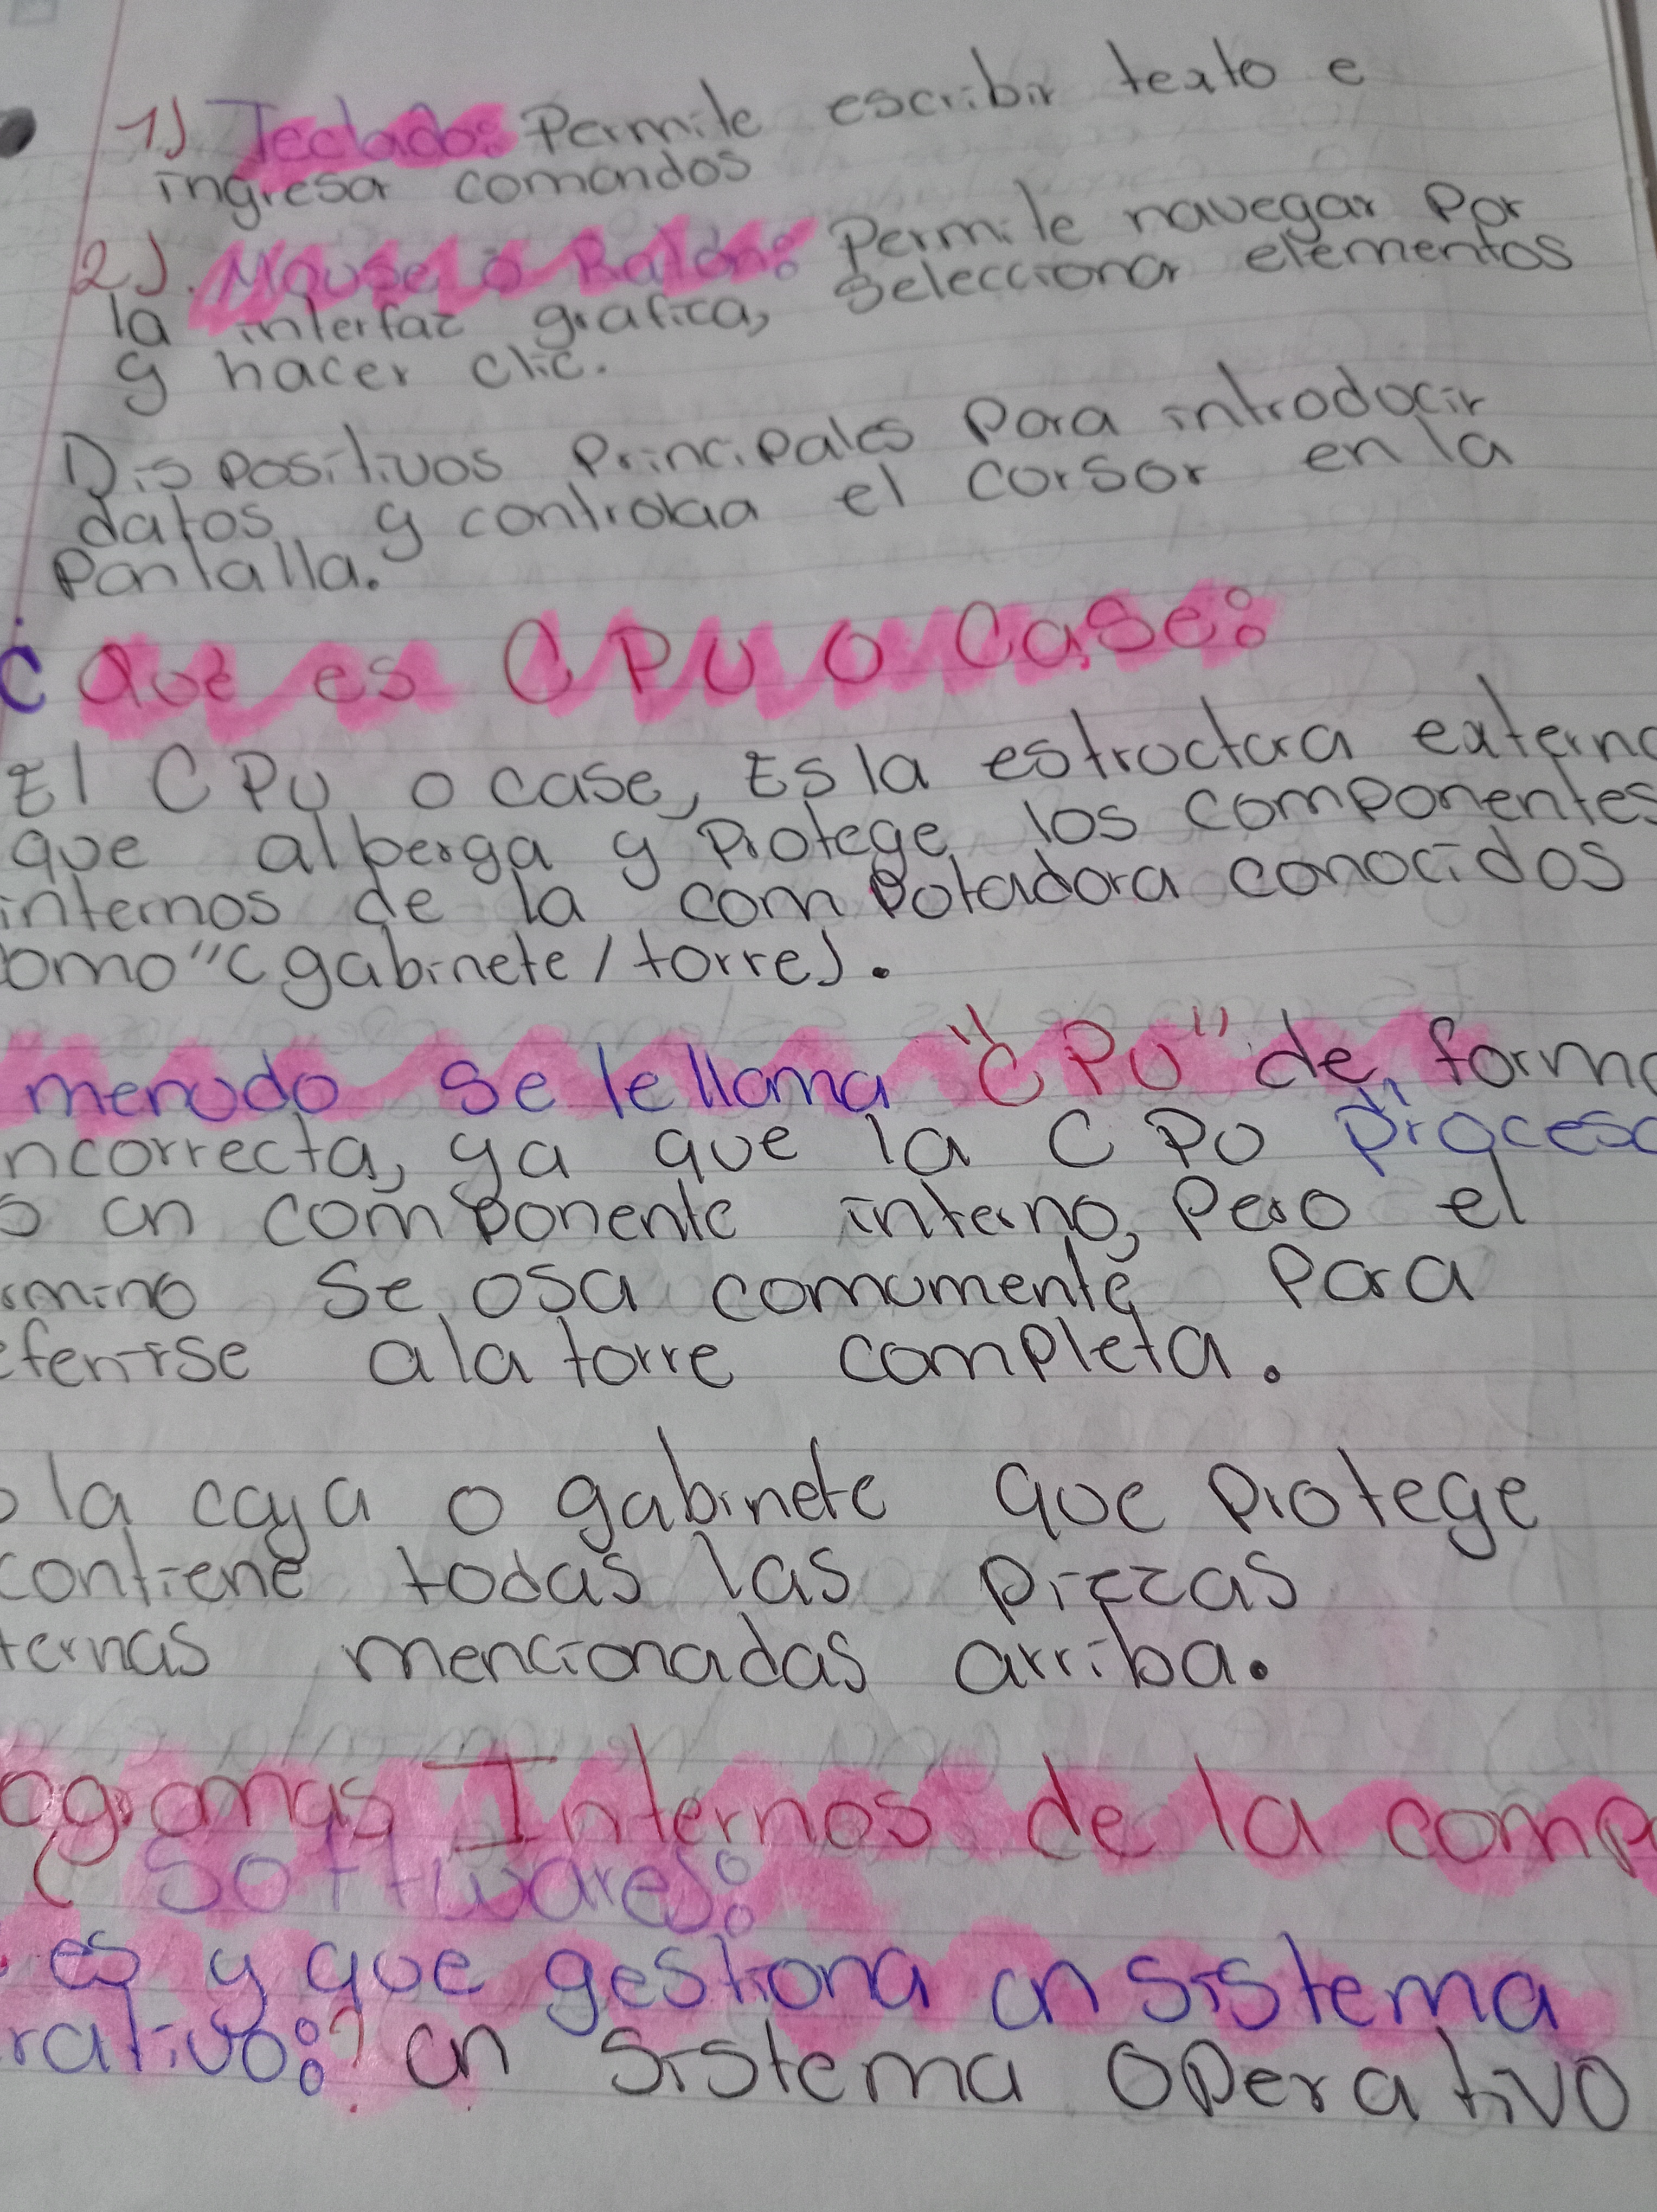 1) Teclado: Permite escribir texto e
ingresar comandos
2). Mouse o Ratón: Permite navegar por
la interfaz grafica, seleccionar elementos
y hacer clic.
Dispositivos Principales para introducir
datos y controlaa el cursor en la
Pantalla.
¿ Que es CPU o Case:
El CPU o case, Es la estructura externa
que alberga y Protege los componentes
internos de la computadora conocidos
como "(gabinete/torre).
menudo se le llama "CPU" de forma
ncorrecta, ya que la CPU procesa
o un componente interno, Pero el
rmino se usa comumente Para
eferirse a la torre completa.
o la caja o gabinete que Protege
contiene todas las Piezas
ternas mencionadas arriba.
ogramas Internos de la comp
(Software):
es y que gestiona un sistema
rativo:? un sistema operativo